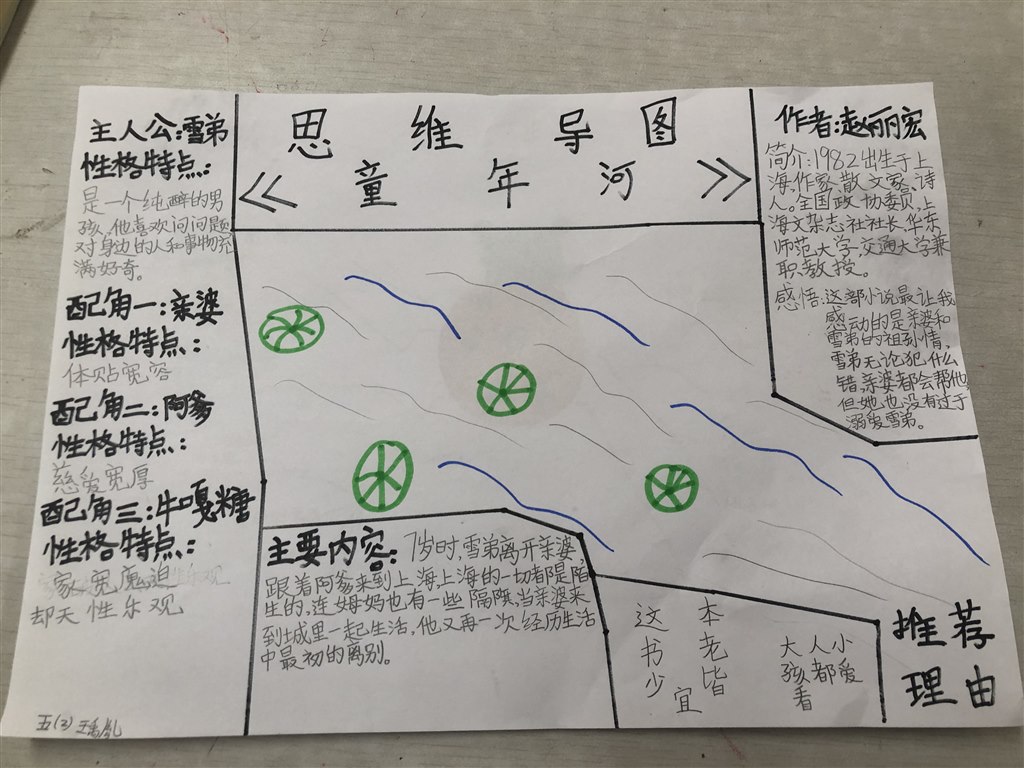 思维导图
《童年河》
主人公:雪弟
性格特点:
是一个纯粹的男
孩,他喜欢问问题
对身边的人和事物充
满好奇。
配角一:亲婆
性格特点:
体贴宽容
配角二:阿爹
性格特点:
宽厚
配角三:牛嘎糖
性格特点:
家
却天性乐观
五(2)
作者:赵丽宏
简介:1982出生于上
海,作家,散文家,诗
人。全国政协委员,上
海文杂志社社长,华东
师范大学,交通大学兼
职教授。
感悟:这部小说最让我
感动的是亲婆和
雪弟的祖孙情,
雪弟无论犯什么
错,亲婆都会帮他,
但她也没有过于
溺爱雪弟。
主要内容:7岁时,雪弟离开亲婆,
跟着阿爹来到上海上海的一切都是陌
生的,连姆妈也有一些隔阂,当亲婆来
到城里一起生活,他又再一次经历生活
中最初的离别。
推荐
理由
这本
书老
少皆
宜
大人小
孩都爱
看